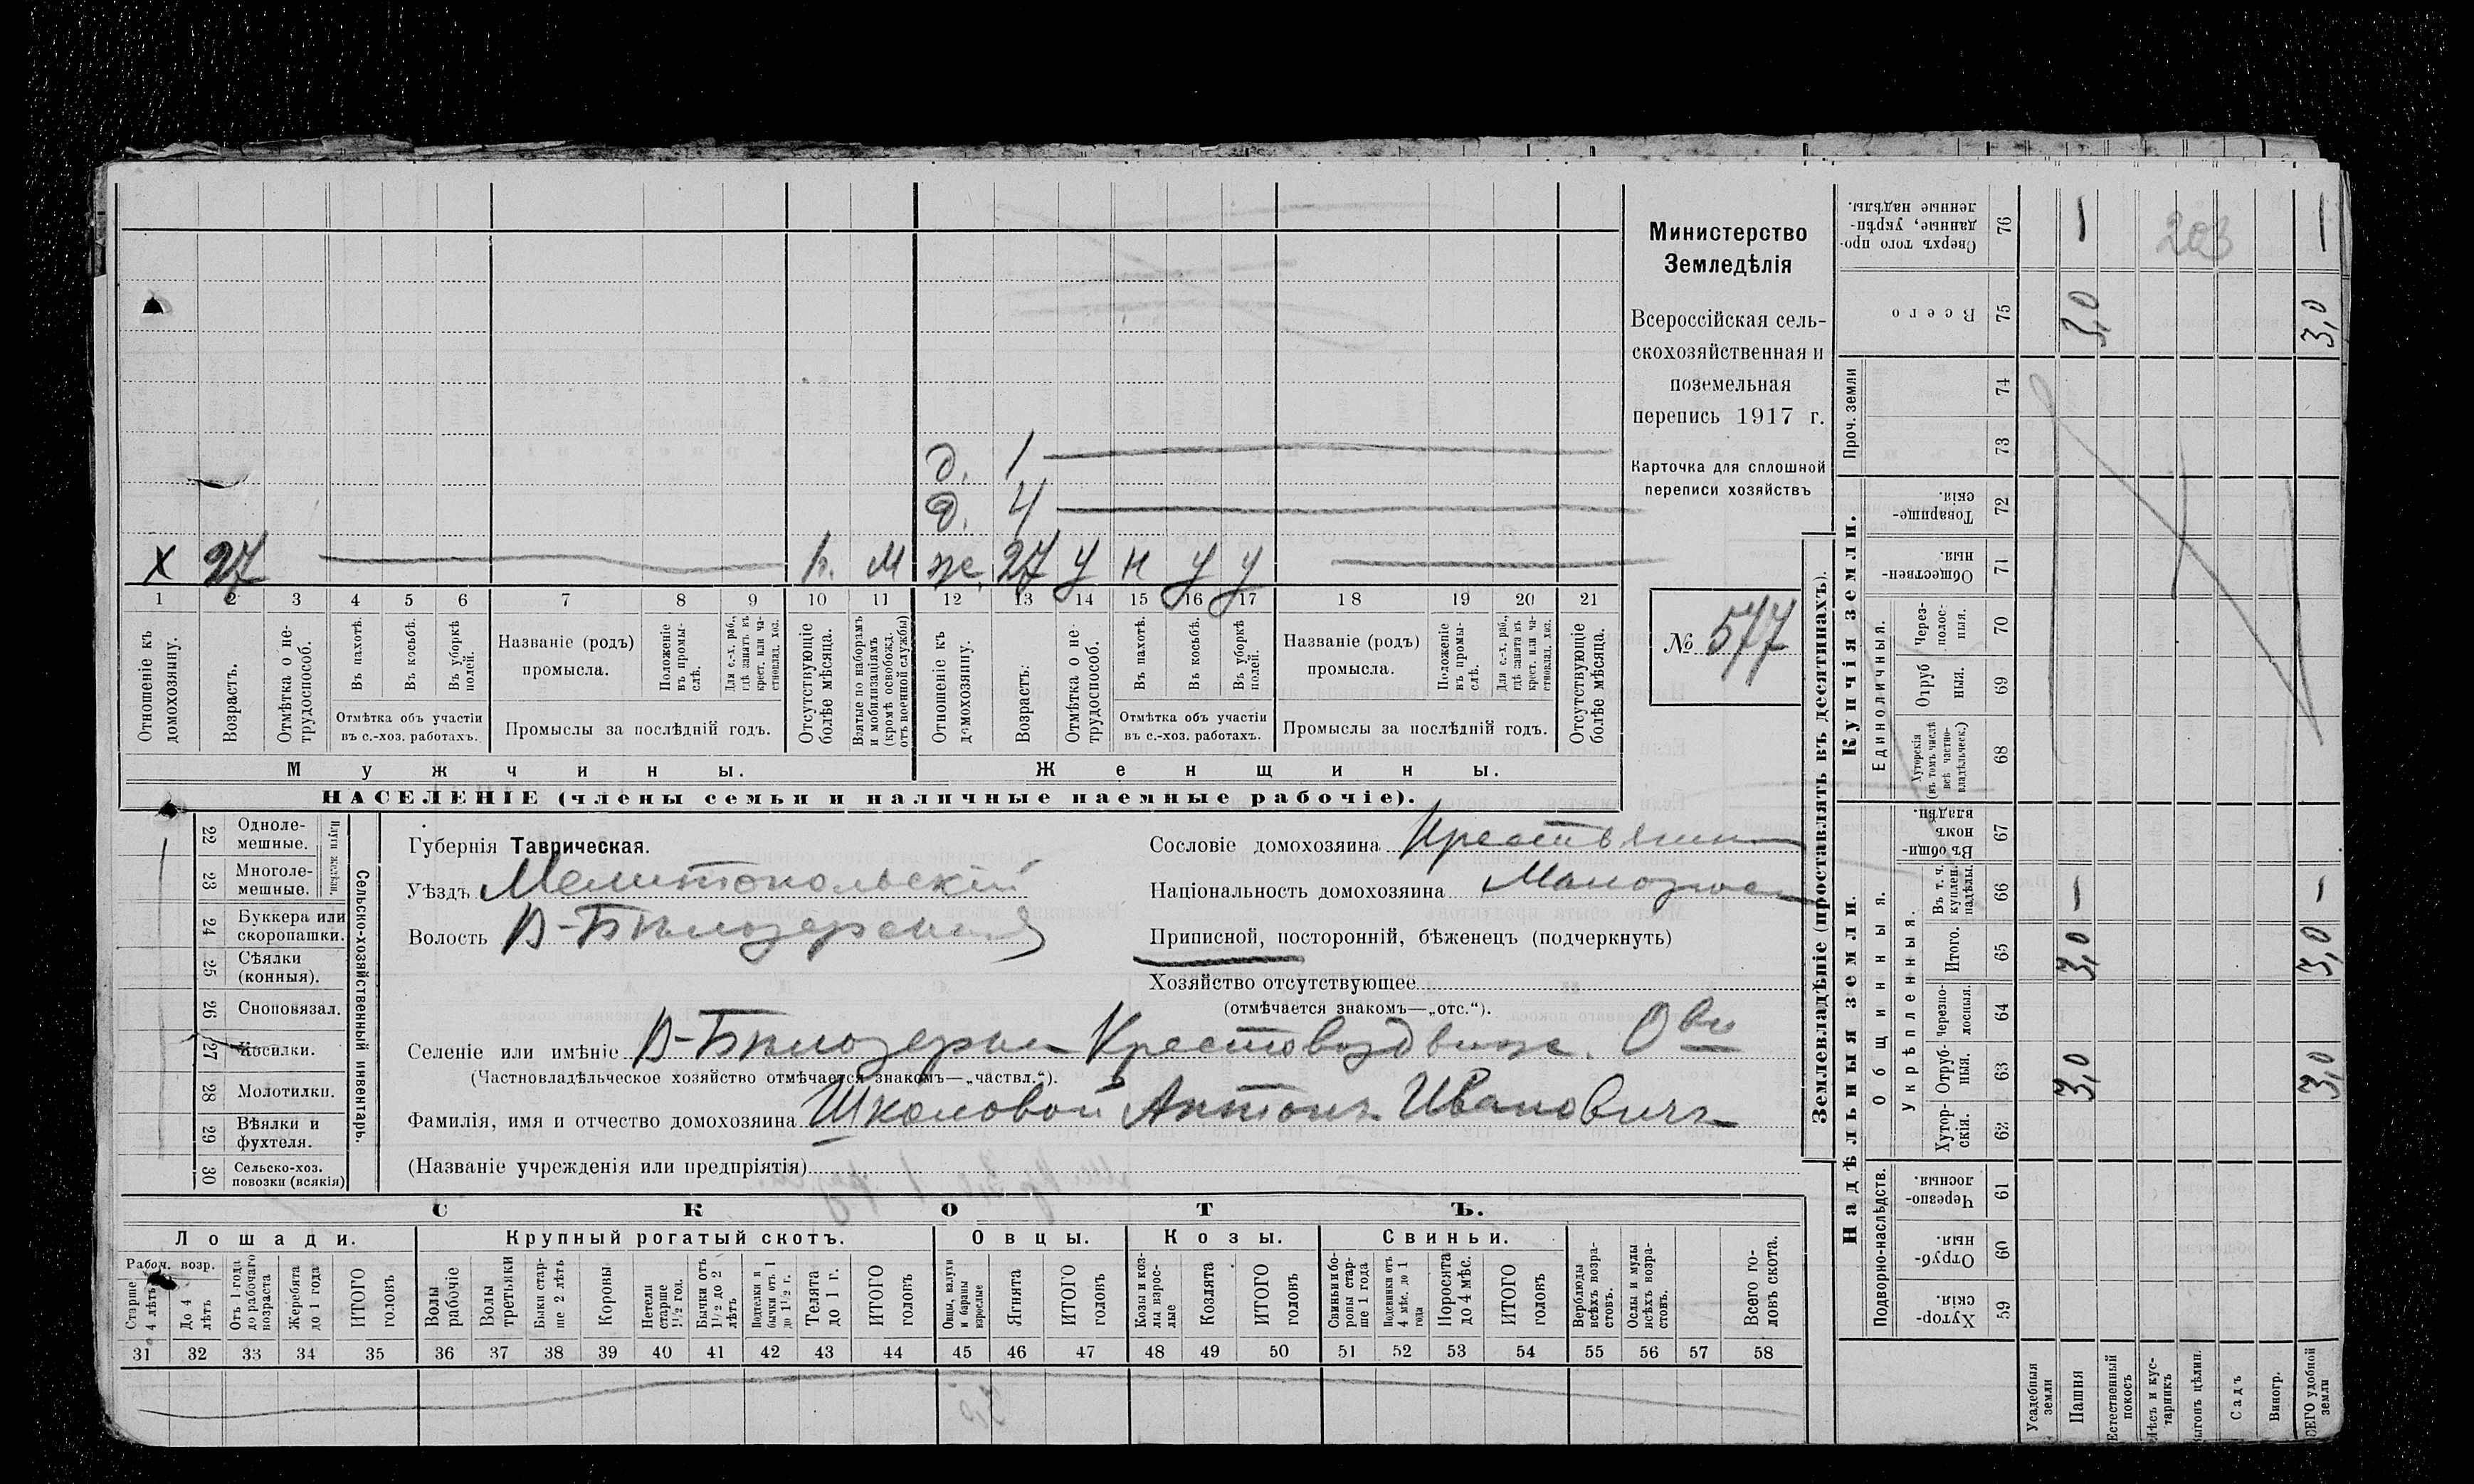 д. 1
д. 4
х 27 п. м ж. 27 у н у у
1 2 3 4 5 6 7 8 9 10 11 12 13 14 15 16 17 18 19 20 21
Отношеніе къ домохозяину.
Возрастъ.
Отмѣтка о не-трудоспособ.
Въ пахотѣ.
Въ косьбѣ.
Въ уборкѣ полей.
Отмѣтка объ участіи
въ с.-хоз. работахъ.
Названіе (родъ)
промысла.
Положеніе въ промы-слѣ.
Для с.-х. раб., гдѣ занятъ въ крест. или ча-стновлад. хоз.
Промыслы за послѣдній годъ.
Отсутствующіе болѣе мѣсяца.
Взятые по наборамъ и мобилизаціямъ (кромѣ освобожд. отъ военной службы)
Отношеніе къ домохозяину.
Возрастъ.
Отмѣтка о не-трудоспособ.
Въ пахотѣ.
Въ косьбѣ.
Въ уборкѣ полей.
Отмѣтка объ участіи
въ с.-хоз. работахъ.
Названіе (родъ)
промысла.
Положеніе въ промы-слѣ.
Для с.-х. раб., гдѣ занятъ въ крест. или ча-стновлад. хоз.
Промыслы за послѣдній годъ.
Отсутствующіе болѣе мѣсяца.
Мужчины.
Женщины.
НАСЕЛЕНІЕ (члены семьи и наличные наемные рабочіе).
Министерство
Земледѣлія
Всероссійская сель-
скохозяйственная и
поземельная
перепись 1917 г.
Карточка для сплошной
переписи хозяйствъ
№ 577
22 Одноле-мешные.
23 Многоле-мешные.
Плуги желѣзн.
24 Буккера или скоропашки.
25 Сѣялки (конныя).
26 Сноповязал.
27 Косилки.
28 Молотилки.
29 Вѣялки и фухтеля.
30 Сельско-хоз. повозки (всякія)
Сельско-хозяйственный инвентарь.
Губернія Таврическая.
Уѣздъ Мелитопольскій
Волость В-Бѣлозерская
Сословіе домохозяина Крестьянин
Національность домохозяина Малоросс
Приписной, посторонній, бѣженецъ (подчеркнуть)
Хозяйство отсутствующее
(отмѣчается знакомъ—„отс.“).
Селеніе или имѣніе В-Бѣлозерка Крестовоздвиж. О-во
(Частновладѣльческое хозяйство отмѣчается знакомъ—„частвл.“).
Фамилія, имя и отчество домохозяина Школовой Антонъ Ивановичъ
(Названіе учрежденія или предпріятія)
СКОТЪ.
Лошади.
Крупный рогатый скотъ.
Овцы.
Козы.
Свиньи.
Рабоч. возр.
Старше 4 лѣтъ
До 4 лѣтъ
Отъ 1 года до рабочаго возраста
Жеребята до 1 года
ИТОГО головъ
Волы рабочіе
Волы третьяки
Быки стар-ше 2 лѣтъ
Коровы
Нетели старше 1½ год.
Бычки отъ 1½ до 2 лѣтъ
Подтелки и бычки отъ 1 до 1½ г.
Телята до 1 г.
ИТОГО головъ
Овцы, валухи и бараны взрослые
Ягнята
ИТОГО головъ
Козы и коз-лы взрос-лые
Козлята
ИТОГО головъ
Свиньи и бо-ровы стар-ше 1 года
Подсвинки отъ 4 мѣс. до 1 года
Поросята до 4 мѣс.
ИТОГО головъ
Верблюды всѣхъ возра-стовъ.
Ослы и мулы всѣхъ возра-стовъ.
Всего го-ловъ скота.
31 32 33 34 35 36 37 38 39 40 41 42 43 44 45 46 47 48 49 50 51 52 53 54 55 56 57 58
Землевладѣніе (проставлять въ десятинахъ).
Надѣльныя земли.
Купчія земли.
Проч. земли
Подворно-наслѣдств.
Общинныя.
Укрѣпленныя.
Единоличныя.
Сверхъ того про-данные, укрѣп-ленные надѣлы. 76 — 203 —
Всего 75 3,0 3,0
74
73
Товарище-скія. 72
Обществен-ныя. 71
Через-полос-ныя. 70
Отруб ныя. 69
Хуторскія (въ томъ числѣ всѣ частно-владѣльческ.) 68
Въ общин-номъ владѣн. 67
Въ т. ч. куплен. надѣлы. 66 — —
Итого. 65 3,0 3,0
Черезпо-лосныя. 64
Отруб-ныя. 63 3,0 3,0
Хутор-скія. 62
Черезпо-лосныя. 61
Отруб-ныя. 60
Хутор-скія. 59
Усадебныя земли
Пашня
Естественный покосъ
Лѣсъ и кус-тарникъ
Выгонъ цѣлин.
Садъ
Виногр.
ВСЕГО удобной земли